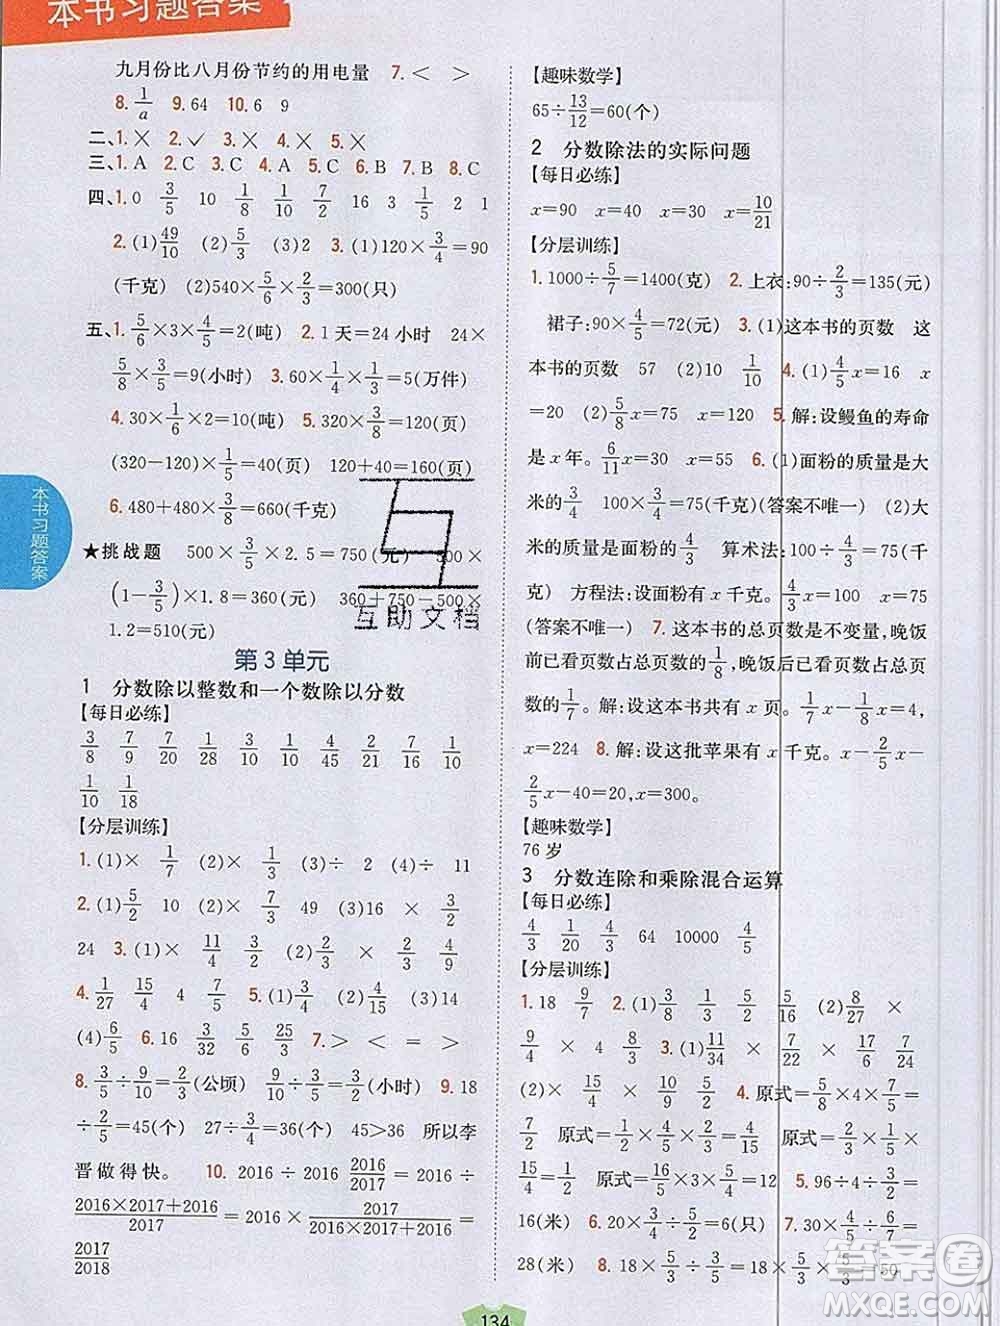 本书习题答案
九月份比八月份节约的用电量 7.< >
8. 1/a 9. 64 10. 6 9
二、1.× 2.✓ 3.× 4.× 5.×
三、1. A 2. C 3. C 4. A 5. C 6. B 7. B 8. C
四、1. 0 3/5 10 1/8 1/10 7/2 16 3 1/5 2 1
2. (1)49/10 (2)5/3 (3)2 3. (1)120×3/4=90
(千克) (2)540×5/6×2/3=300(只)
五、1. 5/6×3×4/5=2(吨) 2. 1天=24小时 24×
5/8×3/5=9(小时) 3. 60×1/4×1/3=5(万件)
4. 30×1/6×2=10(吨) 5. 320×3/8=120(页)
(320-120)×1/5=40(页) 120+40=160(页)
6. 480+480×3/8=660(千克)
★挑战题 500×3/5×2.5=750(元) 500×
(1-3/5)×1.8=360(元) 360+750-500×
1.2=510(元)
互助文档
第3单元
1 分数除以整数和一个数除以分数
【每日必练】
3/8 7/9 7/20 4/15 3/28 2/11 2/9 1/8 1/9
1/10 1/18
【分层训练】
1. (1)× 1/7 (2)× 2/3 (3)÷ 2 (4)÷ 11
2. (1)5/2 10 (2)× 7/3 49 (3)16 × 3/2
24 3. (1)× 11/4 4/3 (2)× 2/3 2/3 3/4
4. 1/27 15/4 4 7/5 5. (1)3/10 (2)4/15 (3)9/4
(4)6/5 6. 16 3/32 5/6 25/3 7. > < = >
8. 3/5÷9/10=2/3(公顷) 9/10÷3/5=3/2(小时) 9. 18
÷2/5=45(个) 27÷3/4=36(个) 45>36 所以李
晋做得快。 10. 2016÷2016 2016/2017=2016÷
(2016×2017+2016)/2017=2016×2017/(2016×2017+2016)=
2017/2018
【趣味数学】
65÷13/12=60(个)
2 分数除法的实际问题
【每日必练】
x=90 x=40 x=30 x=10/21
【分层训练】
1. 1000÷5/7=1400(克) 2. 上衣:90÷2/3=135(元)
裙子:90×4/5=72(元) 3. (1)这本书的页数 这
本书的页数 57 (2)10 1/10 4. (1)4/5x=16 x
=20 (2)5/8x=75 x=120 5. 解:设鳗鱼的寿命
是x年。6/11x=30 x=55 6. (1)面粉的质量是大
米的3/4 100×3/4=75(千克)(答案不唯一) (2)大
米的质量是面粉的4/3 算术法:100÷4/3=75(千
克) 方程法:设面粉有x千克。4/3x=100 x=75
(答案不唯一) 7. 这本书的总页数是不变量,晚饭
前已看页数占总页数的1/8,晚饭后已看页数占总页
数的1/7。解:设这本书共有x页。1/7x-1/8x=4
x=224 8. 解:设这批苹果有x千克。x-2/5x-
2/5x-40=20,x=300。
【趣味数学】
76岁
3 分数连除和乘除混合运算
【每日必练】
4/3 1/20 4/3 64 10000 4/5
【分层训练】
1. 18 9/7 2. (1)3/8 1/3 5/2 5/16 (2)8/27 ×
9/4 × 4 8/3 3. (1)11/34 × 7/22 × 7/24
(2)× 15/4 × 2/5 × 4 4. 原式=5/8×2/5×14=
7/2 原式=1/2×4/5×2/3=4/15 原式=2/3×7/5×
14/5=4/3 原式=16/15×5/2×3/4=2 5. 96÷4÷3/2=
16(米) 6. 20×3/4÷5/2=6(只) 7. 30×4/5÷6/7=
28(米) 8. 18×5/3÷3/5=18×5/3×5/3=50
134
答案圈
MXQE.COM
本书习题答案